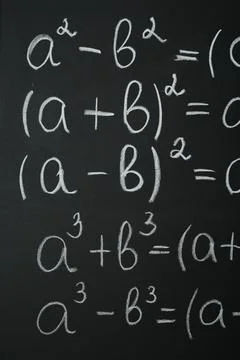 a² - b² = (
(a + b)² =
(a - b)² =
a³ + b³ = (a+
a³ - b³ = (a-